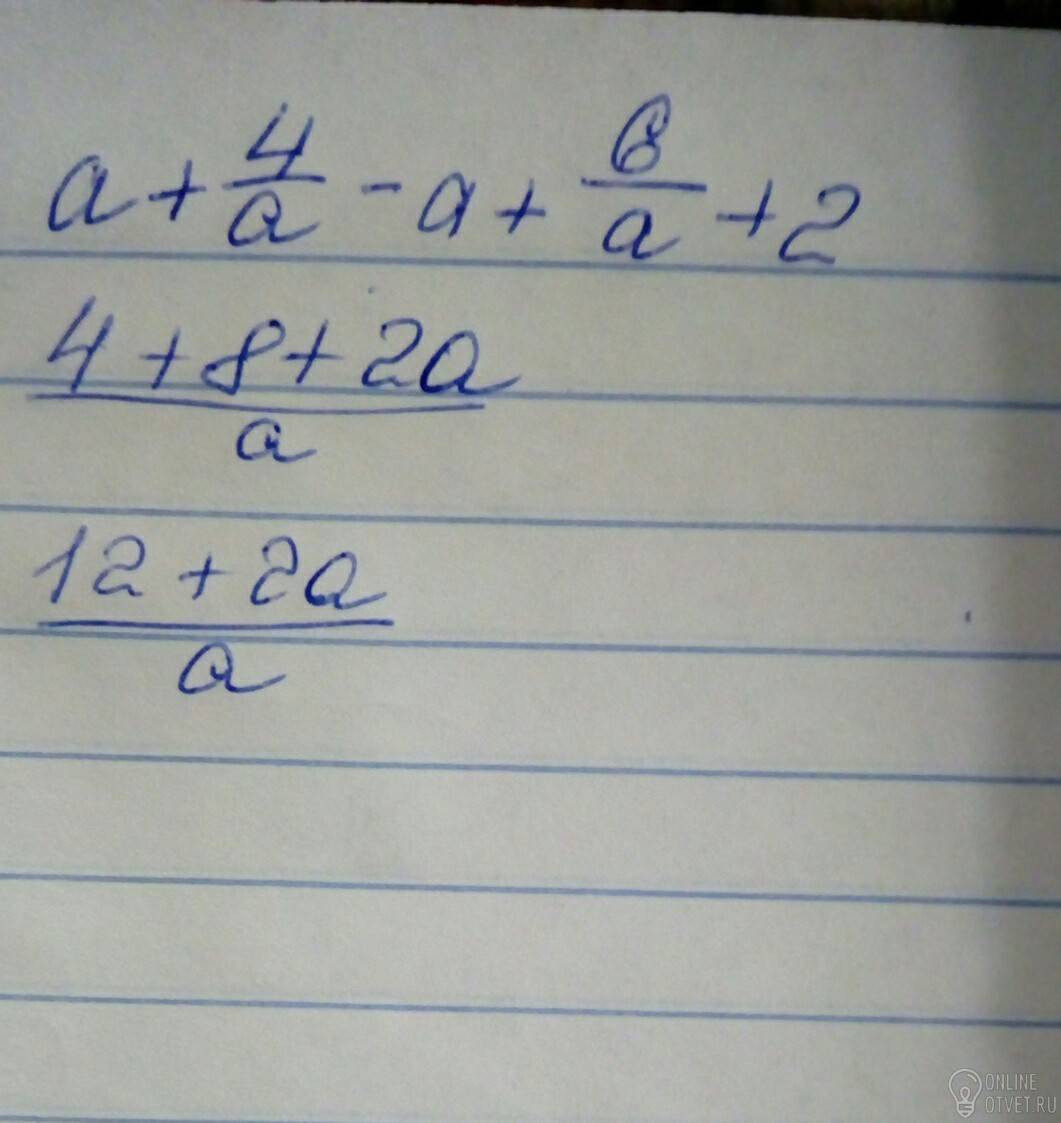 a + 4/a - a + 8/a + 2
(4 + 8 + 2a)/a
(12 + 2a)/a
ONLINE
OTVET.RU